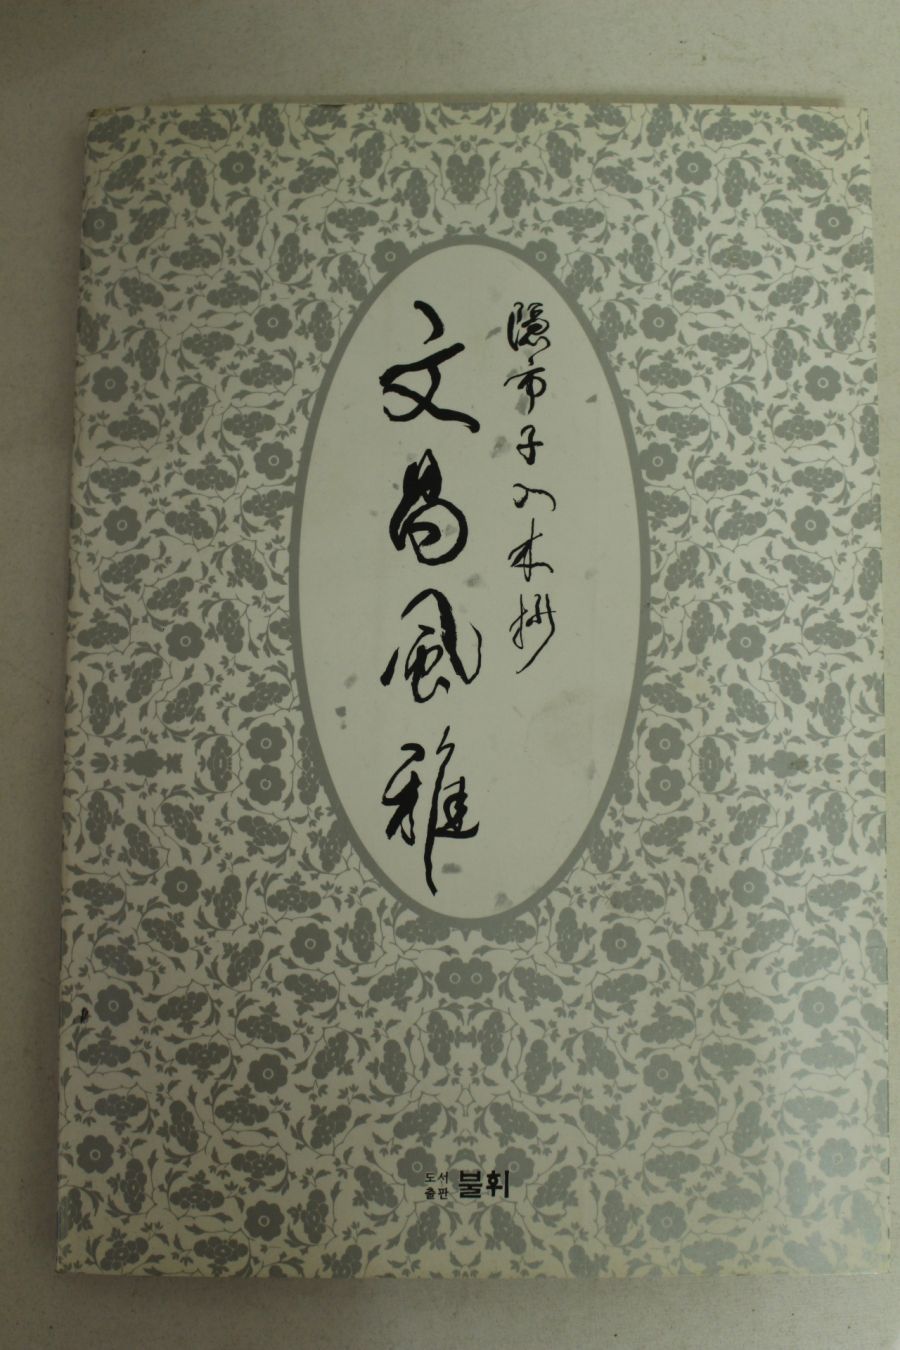 隱市子入木抄
文昌風雅
도서
출판 불휘